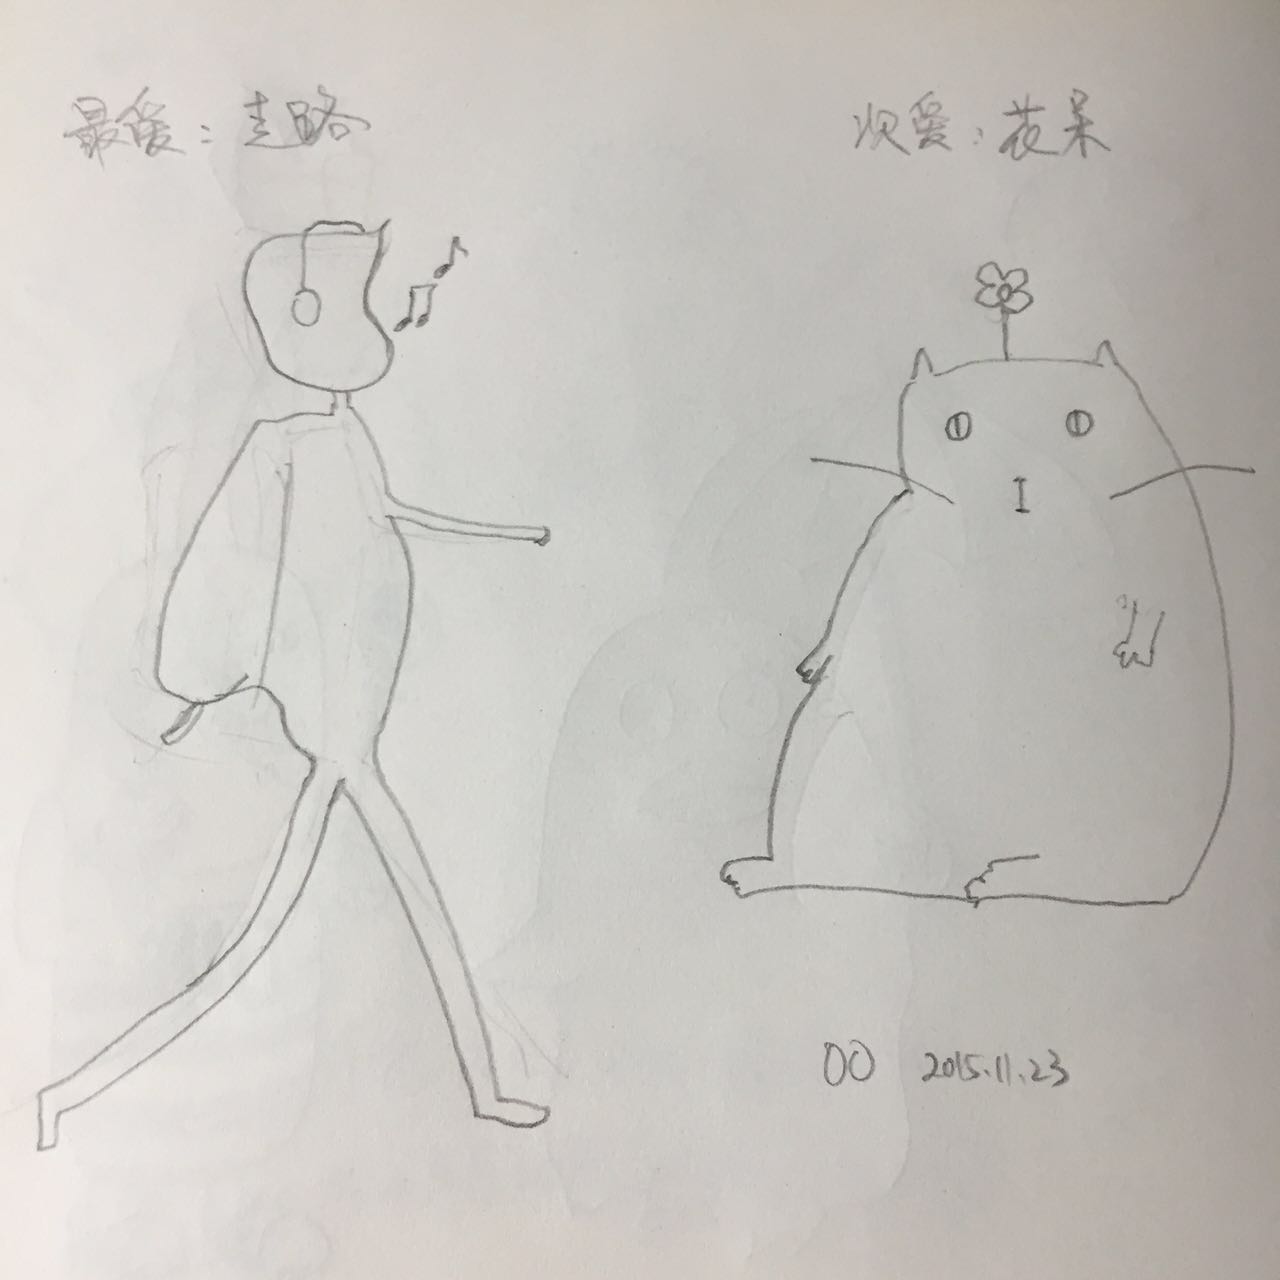 最爱：走路
次爱：花呆
OO 2015.11.23